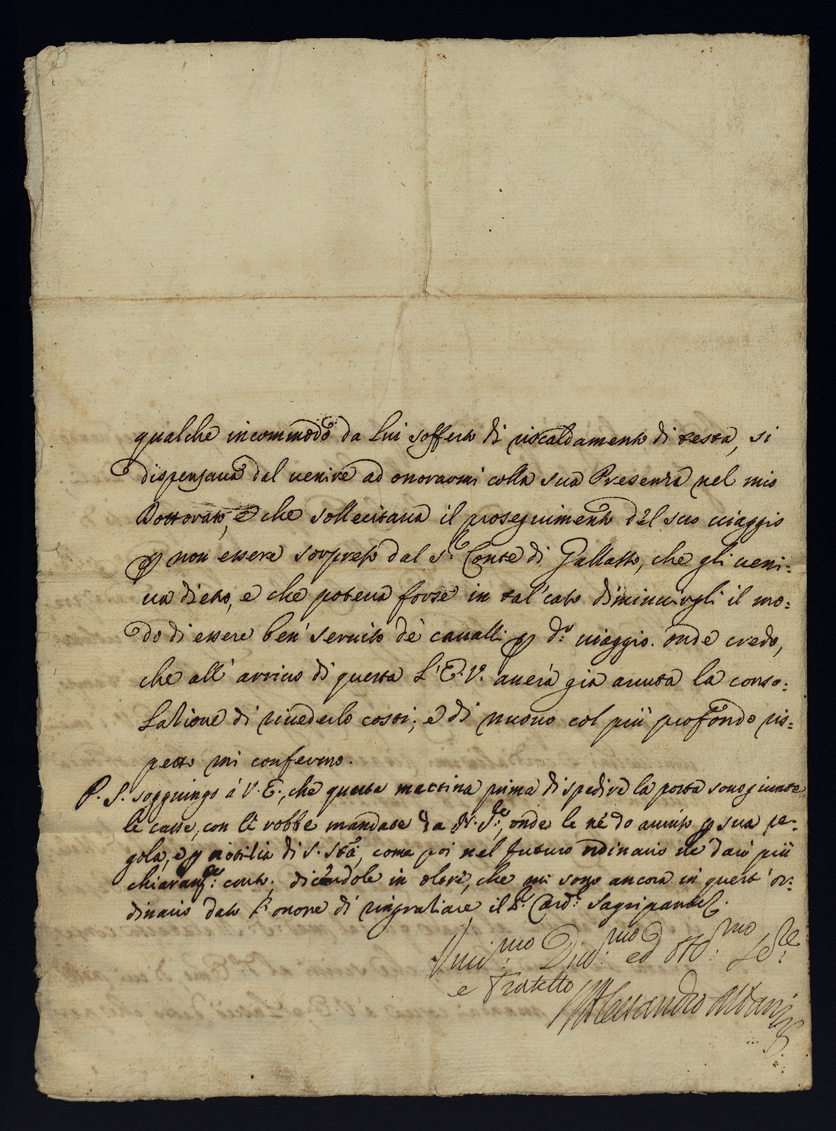 qualche incommodo da lui sofferto di riscaldamento di testa, si
dispensava dal venire ad onorarmi colla sua Presenza nel mio
Dottorato, e che sollecitava il proseguimento del suo viaggio
p non essere sorpreso dal S.r Conte di Gallasso, che gli veni-
va dietro, e che poteva forse in tal caso diminuirgli il mo-
do di essere ben' servito de cavalli p d.o viaggio. onde credo,
che all' arrivo di questa l'E.V. averà già avuta la conso-
latione di rivederlo costi; e di nuovo col più profondo ris-
petto mi confermo.
P.S. soggiungo à V.E., che questa mattina prima di spedire la posta sono giunte
le casse, con le robbe mandate da N. S.re, onde le ne do avviso p sua re-
gola, e p notitia di S. Stà, come poi nel futuro ordinario ne darò più
chiaram.te conto; dicendole in oltre, che mi sono ancora in quest' or-
dinario dato l'onore di ringratiare il S.r Card. Sagripante.
Um.mo Div.mo ed Obb.mo Se.re
e Fratello Alessandro Albani